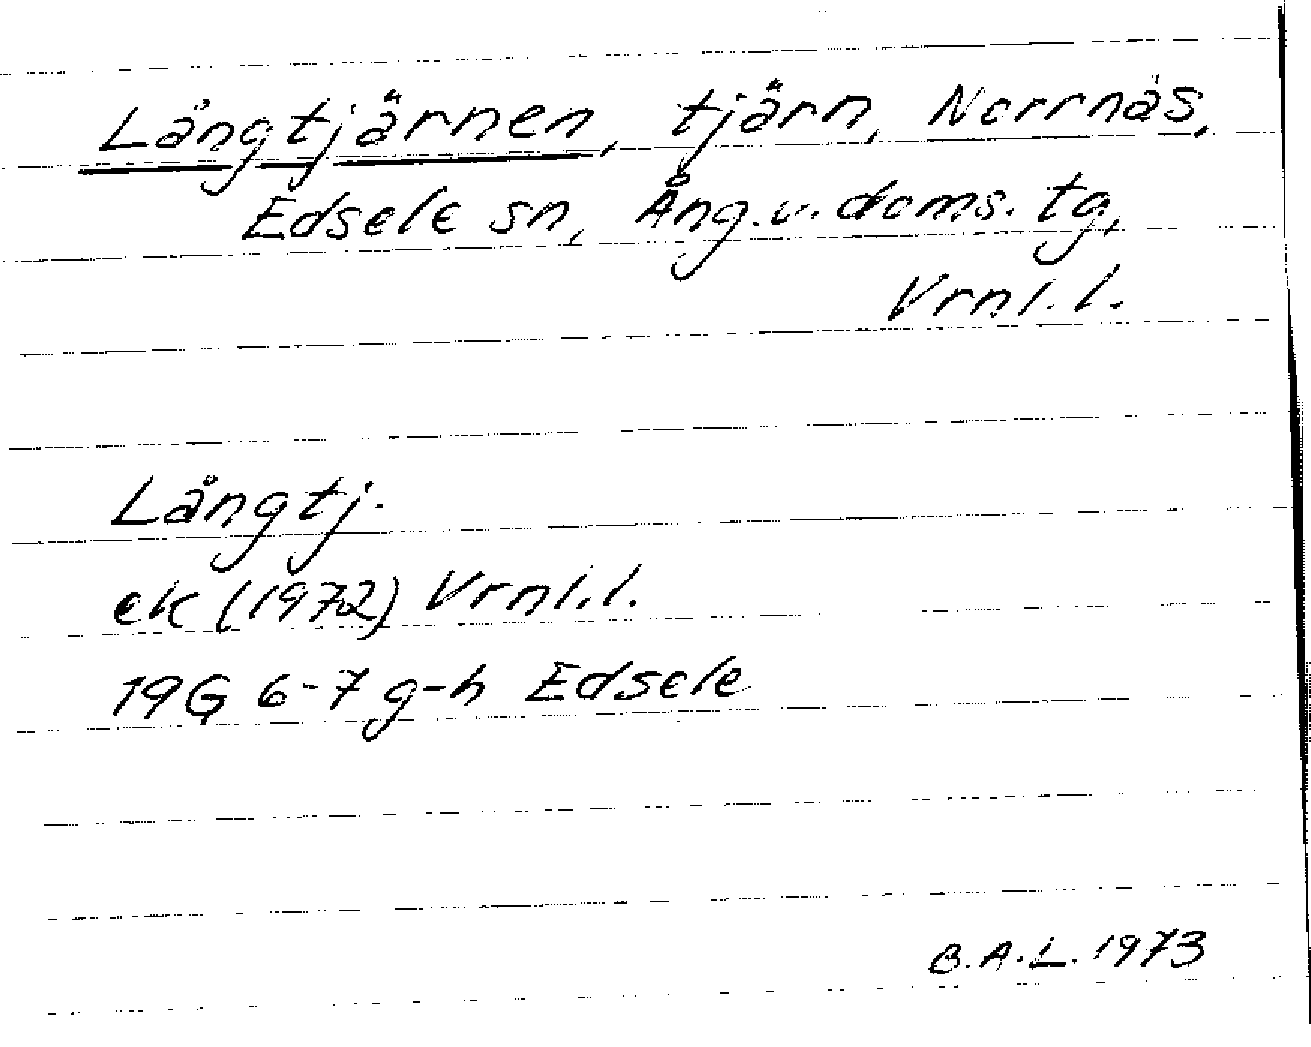 Långtjärnen, tjärn, Norrnäs,
Edsele sn, Ång.v. doms. tg,
Vrnl. l.
Långtj.
ek (1972) Vrnl.l.
19G 6-7 g-h Edsele
B.A.L. 1973